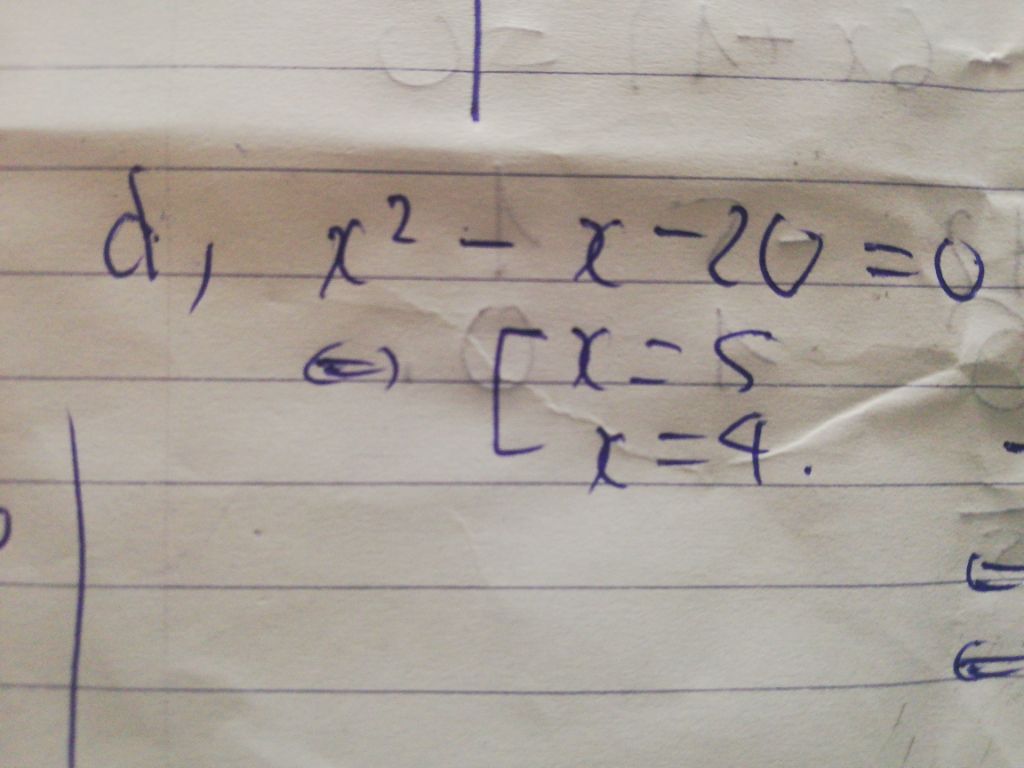 d, x² - x - 20 = 0
⇔ [ x = 5
x = 4.